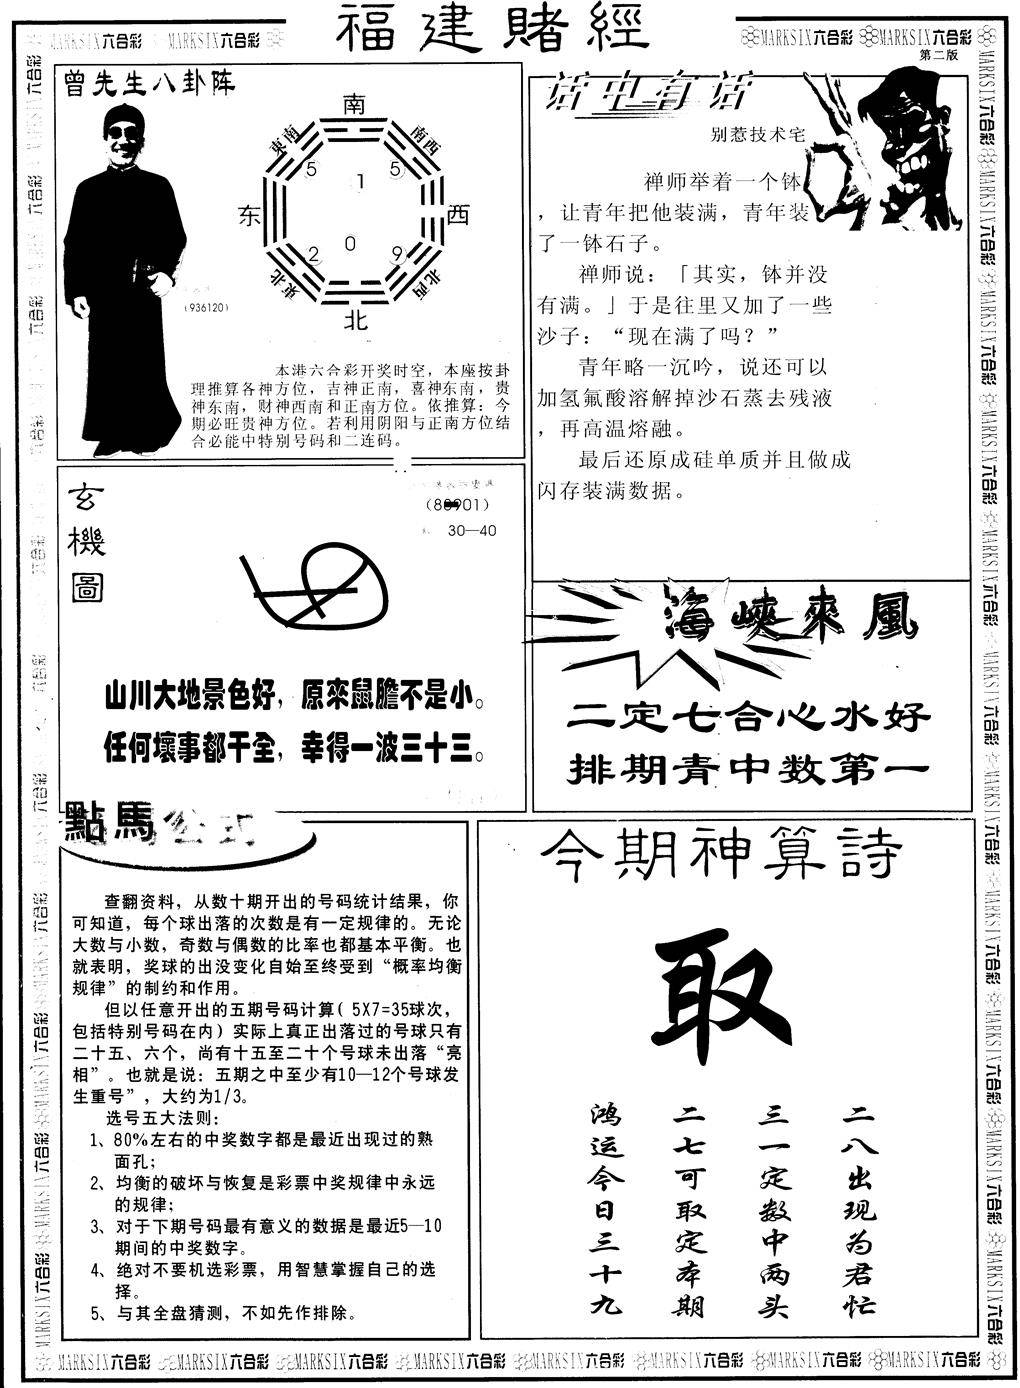 福建賭經
MARKSIX六合彩 MARKSIX六合彩
MARKSIX六合彩 MARKSIX六合彩
第二版
曾先生八卦阵
南
東南
南西
5
1
5
东
西
2
0
9
東北
北西
北
(936120)
本港六合彩开奖时空，本座按卦
理推算各神方位，吉神正南，喜神东南，贵
神东南，财神西南和正南方位。依推算：今
期必旺贵神方位。若利用阴阳与正南方位结
合必能中特别号码和二连码。
话中有话
别惹技术宅
禅师举着一个钵
，让青年把他装满，青年装
了一钵石子。
禅师说：「其实，钵并没
有满。」于是往里又加了一些
沙子：“现在满了吗？”
青年略一沉吟，说还可以
加氢氟酸溶解掉沙石蒸去残液
，再高温熔融。
最后还原成硅单质并且做成
闪存装满数据。
玄機圖
30—40
山川大地景色好，原來鼠膽不是小。
任何壞事都干全，幸得一波三十三。
海峽來風
二定七合心水好
排期青中数第一
點馬公式
查翻资料，从数十期开出的号码统计结果，你
可知道，每个球出落的次数是有一定规律的。无论
大数与小数，奇数与偶数的比率也都基本平衡。也
就表明，奖球的出没变化自始至终受到“概率均衡
规律”的制约和作用。
但以任意开出的五期号码计算（5X7=35球次，
包括特别号码在内）实际上真正出落过的号球只有
二十五、六个，尚有十五至二十个号球未出落“亮
相”。也就是说：五期之中至少有10—12个号球发
生重号”，大约为1/3。
选号五大法则：
1、80%左右的中奖数字都是最近出现过的熟
面孔；
2、均衡的破坏与恢复是彩票中奖规律中永远
的规律；
3、对于下期号码最有意义的数据是最近5—10
期间的中奖数字。
4、绝对不要机选彩票，用智慧掌握自己的选
择。
5、与其全盘猜测，不如先作排除。
今期神算詩
取
二八出现为君忙
三一定数中两头
二七可取定本期
鸿运今日三十九
MARKSIX六合彩 MARKSIX六合彩 MARKSIX六合彩 MARKSIX六合彩 MARKSIX六合彩 MARKSIX六合彩 MARKSIX六合彩 MARKSIX六合彩